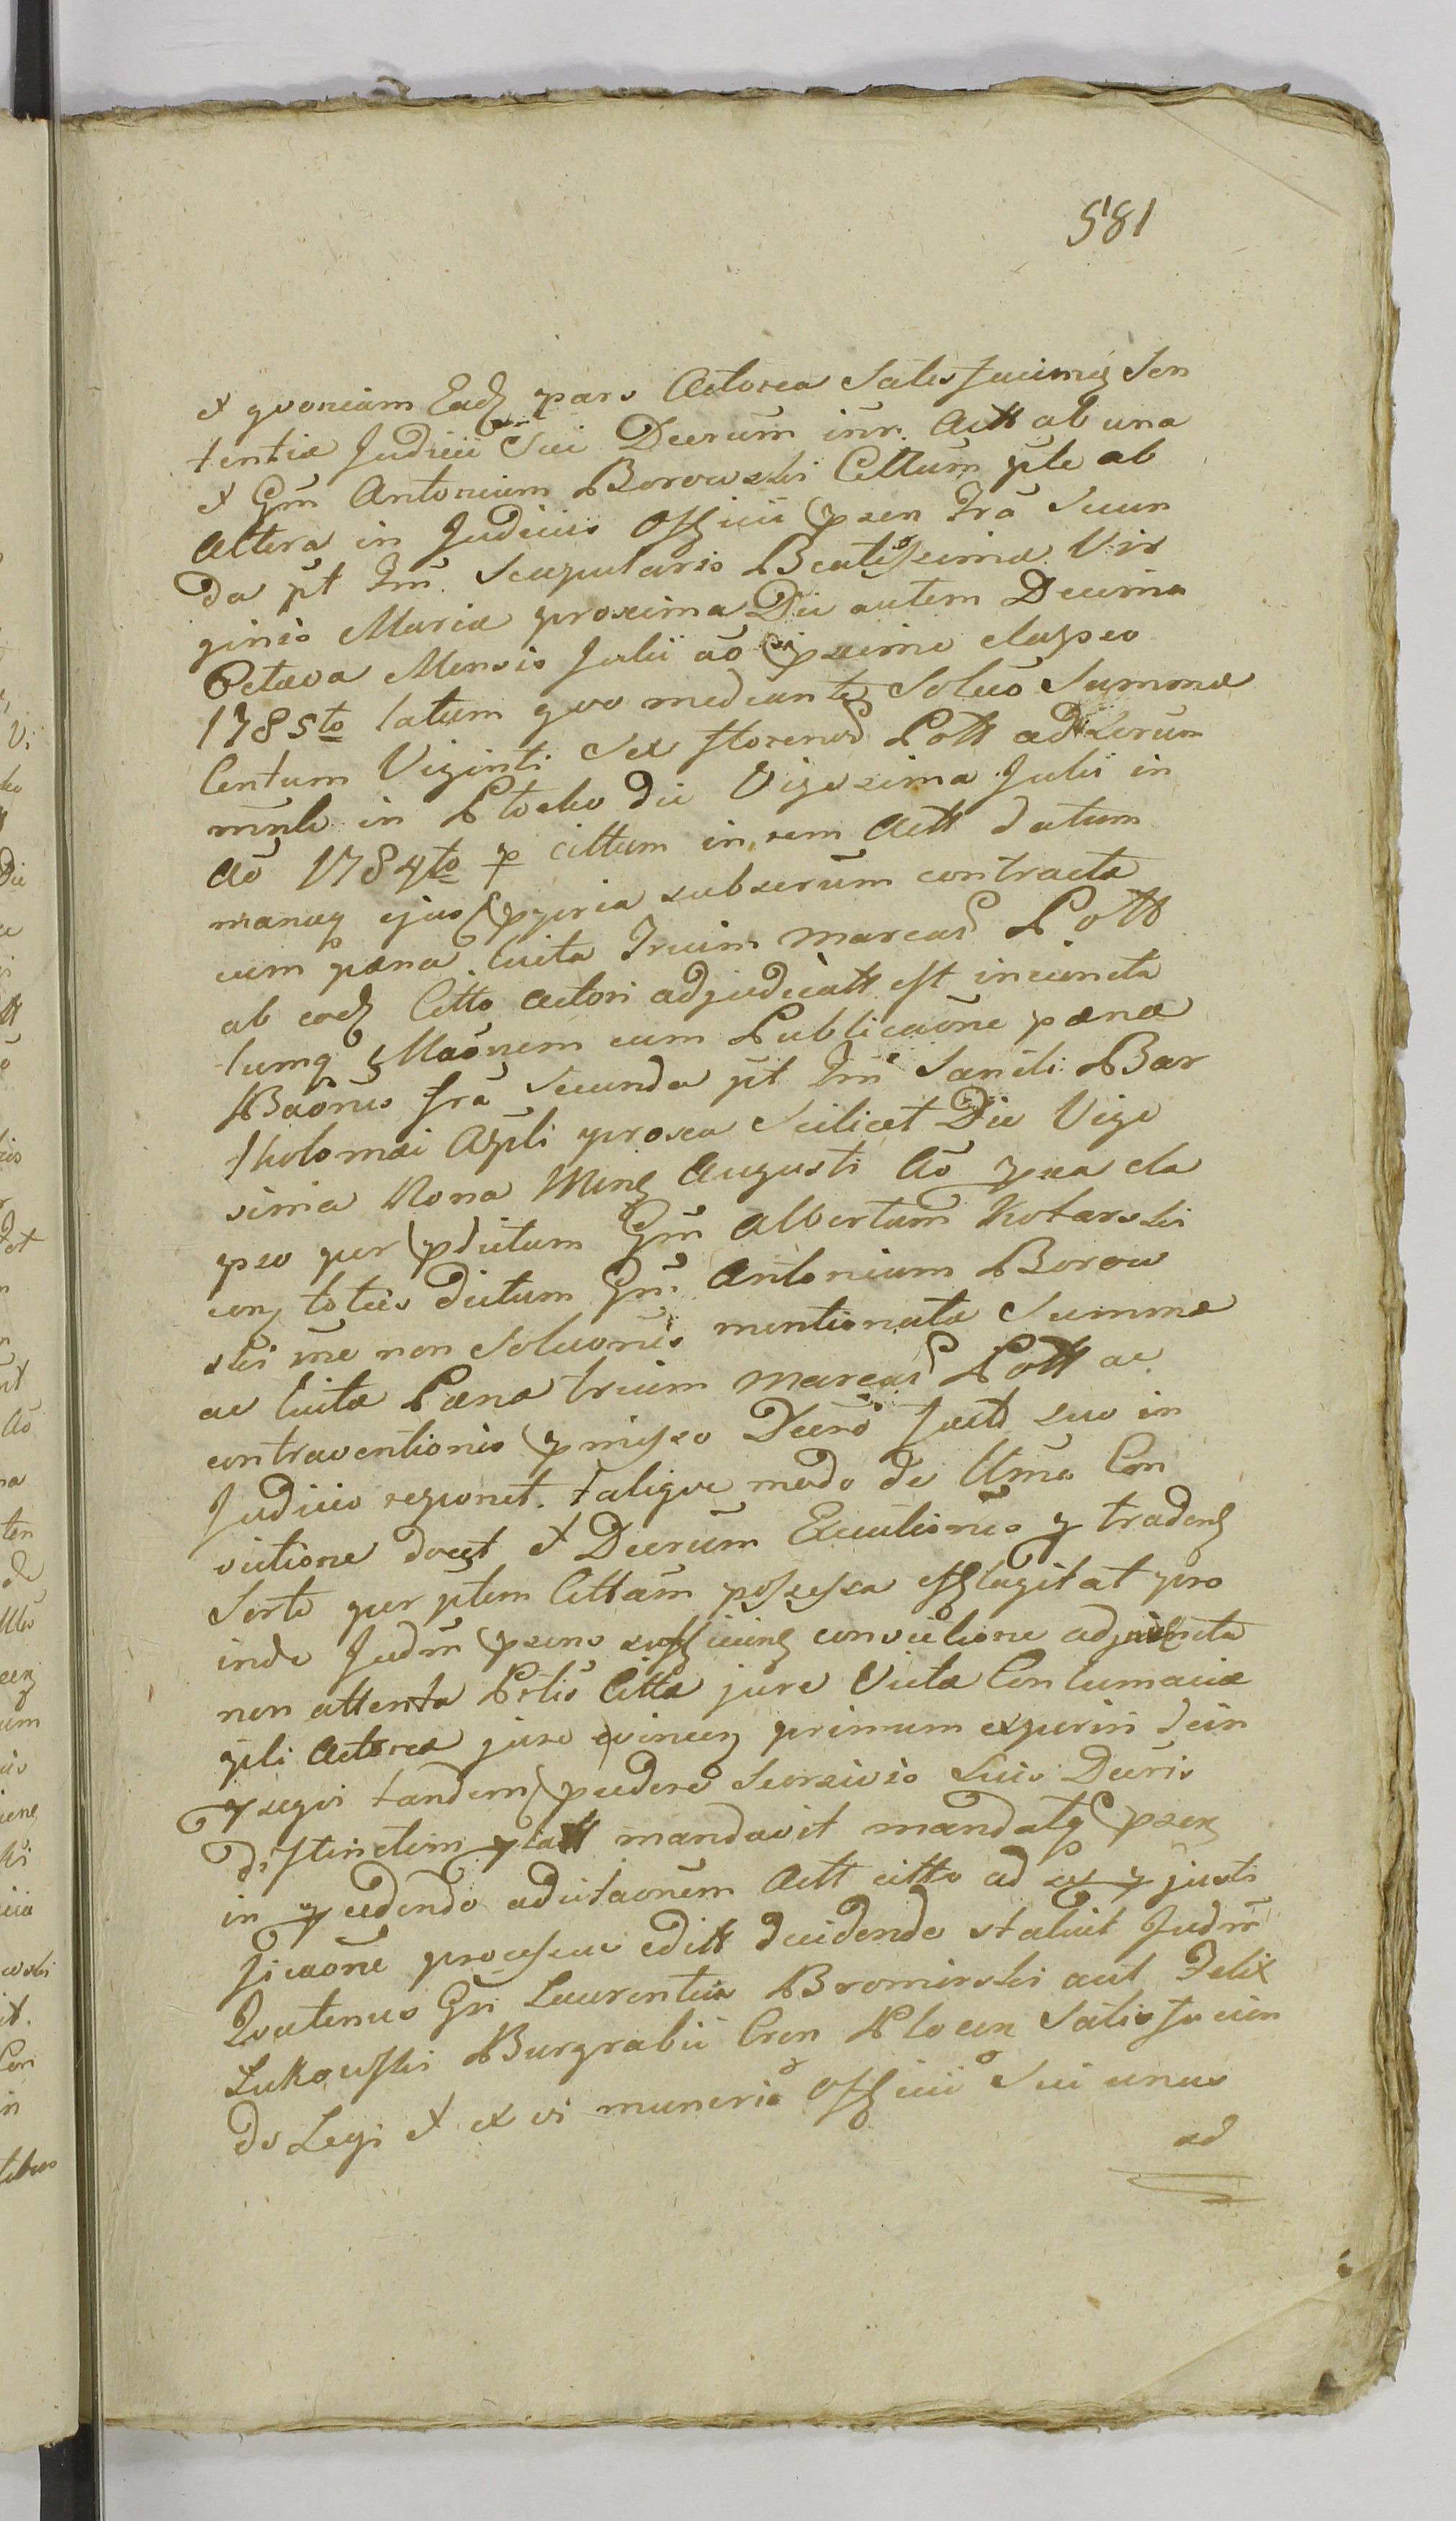 581
et qvoniam Eadȝ pars Actorea Satisfaciendȝ Sen
tentiæ Judicii Sui Decrum inr. Actt ab una
et Gm Antonium Borowski Cittum ple ab
altera in Judiciis Officii psen Fra Secun
da pt Fm Scapularis Beatissimæ Vir
ginis Mariæ proxima Die autem Decima
Octava Mensis Julii ao pxime elapso
1785to latum qvo mediante Soluo Summæ
Centum Viginti Sex florenos Poll ad
in Plocko Die Vigesima Julii in
Ao 1784to p cittum in rem Actt datum
manuq ejus ppria subscrum contracta
cum pæna lucita Trium marcas Poll
ab eodȝ Citto Actori adjudicatt est incuncta
tumq Maonem cum Publicaone pænæ
Baonis fra Secunda pt Fm Sancti Bar
tholomæi Apli proxa Scilicet Die Vige
sima Nona Menȝ Augusti Ao pxa ela
pso per pdictum Gm Albertum Kotarski
conȝ toties dictum Gm Antonium Borow
ski me non Soluonis mentionatæ Summæ
ac lucitæ Pænæ trium marcas Poll ac
contraventionis pmisso Decno facto suo in
Judicio reponit. talique modo de Ulma Con
victione docet et Decrum Executionis p tradenȝ
Sorte per ptem Cittam possessa efflagitat pro
inde Judm psens sufficienȝ convictione adjuncta
non attenta Prtis Cittæ jure Victæ Contumacia
pli Actoreæ jure evincenȝ primum experiri dein
psegvi tandem pcedere Seorsivis Suis Decris
distinctim platt mandavit mandatq psenȝ
in pcedendo adcitaonem Actt citto ad ex p justi
ficaone processuu editt decidendo statuit Judm
Qvatenus Gsi Laurentius Bromirski aut Felix
Lukowski Burgrabii Cren Plocen Satisfacien
do Legi et ex vi muneris Officii Sui unus
ad